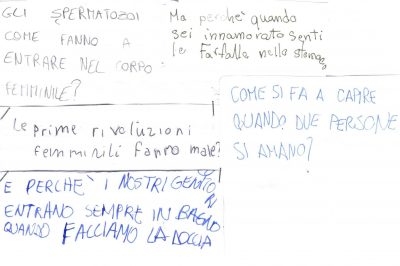 GLI SPERMATOZOI
COME FANNO A
ENTRARE NEL CORPO
FEMMINILE?
Ma perchè quando
sei innamorato senti
le farfalle nella stomaco
Le prime rivoluzioni
femminili fanno male?
COME SI FA A CAPIRE
QUANDO DUE PERSONE
SI AMANO?
E PERCHÈ I NOSTRI GENITORI
ENTRANO SEMPRE IN BAGNO
QUANDO FACCIAMO LA DOCCIA